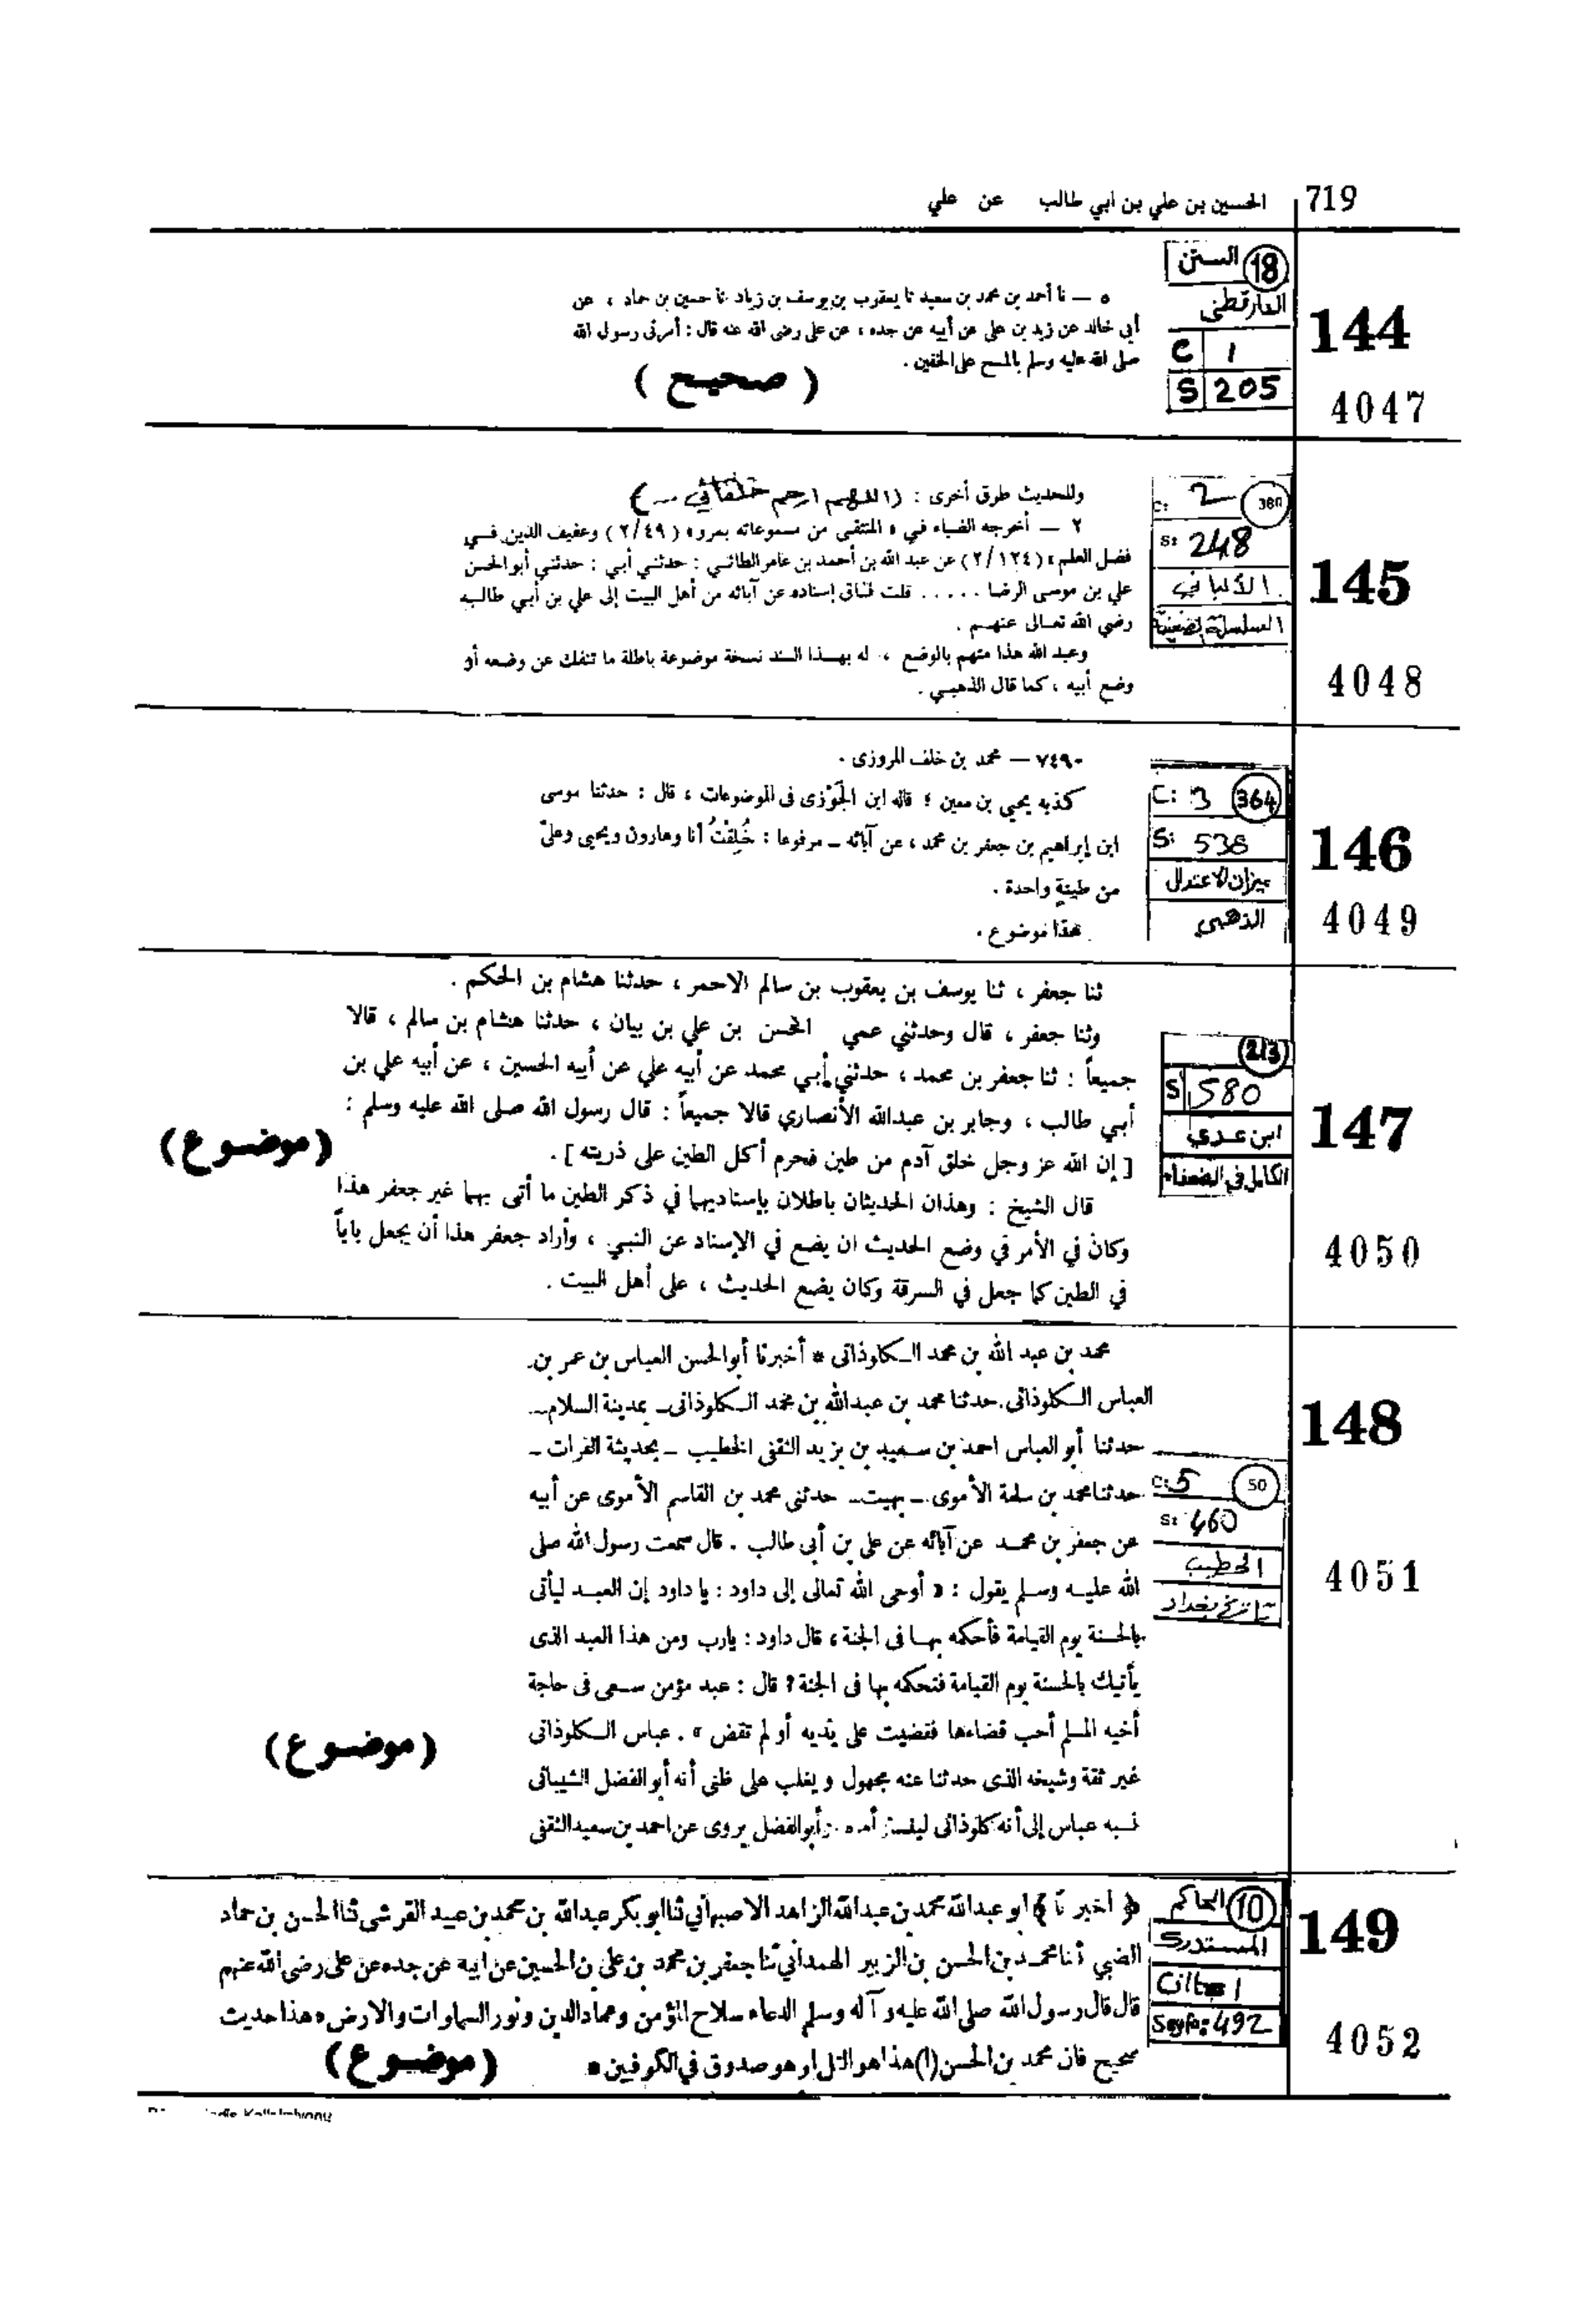 719 الحسين بن علي بن ابي طالب عن علي
144
4047
18 السنن
الدارقطنى
C 1
S 205
٥ — نا أحمد بن محمد بن سعيد نا يعقوب بن يوسف بن زياد نا حسين بن حماد ، عن
أبى خالد عن زيد بن على عن أبيه عن جده ، عن على رضى الله عنه قال : أمرنى رسول الله
صلى الله عليه وسلم بالمسح على الخفين .
( صحيح )
145
4048
C: 2 380
S: 248
الألباني
السلسلة الضعيفة
وللحديث طرق أخرى : (اللهم ارحم خلفائي ...)
٢ — أخرجه الضياء في « المنتقى من مسموعاته بمرو » ( ٢/٤٩ ) وعفيف الدين في
فضل العلم » ( ٢/١٢٤ ) عن عبد الله بن أحمد بن عامر الطائي : حدثني أبي : حدثني أبو الحسن
علي بن موسى الرضا ..... قلت فساق إسناده عن آبائه من أهل البيت إلى علي بن أبي طالب
رضي الله تعالى عنهم .
وعبد الله هذا متهم بالوضع ، له بهذا السند نسخة موضوعة باطلة ما تنفك عن وضعه أو
وضع أبيه ، كما قال الذهبي .
146
4049
C: 3 364
S: 538
ميزان الاعتدال
الذهبي
٧٤٩٠ — محمد بن خلف المروزى .
كذبه يحيي بن معين ؛ قاله ابن الجَوْزى فى الموضوعات ، قال : حدثنا موسى
ابن إبراهيم بن جعفر بن محمد ، عن آبائه _ مرفوعا : خُلِقْتُ أنا وهارون ويحيى وعلىّ
من طينةٍ واحدة .
هذا موضوع .
147
4050
213
S 580
ابن عدي
الكامل في الضعفاء
ثنا جعفر ، ثنا يوسف بن يعقوب بن سالم الاحمر ، حدثنا هشام بن الحكم .
وثنا جعفر ، قال وحدثني عمي الحسن بن علي بن بيان ، حدثنا هشام بن سالم ، قالا
جميعاً : ثنا جعفر بن محمد ، حدثني أبي محمد عن أبيه علي عن أبيه الحسين ، عن أبيه علي بن
أبي طالب ، وجابر بن عبدالله الأنصاري قالا جميعاً : قال رسول الله صلى الله عليه وسلم :
[ إن الله عز وجل خلق آدم من طين فحرم أكل الطين على ذريته ] .
(موضوع)
قال الشيخ : وهذان الحديثان باطلان بإسناديهما في ذكر الطين ما أتى بهما غير جعفر هذا
وكان في الأمر في وضع الحديث ان يضع في الإسناد عن النبي ، وأراد جعفر هذا أن يجعل باباً
في الطين كما جعل في السرقة وكان يضع الحديث ، على أهل البيت .
148
4051
C: 5 50
S: 460
الخطيب
تاريخ بغداد
محمد بن عبد الله بن محمد الكلوذانى * أخبرنا أبو الحسن العباس بن عمر بن
العباس الكلوذانى . حدثنا محمد بن عبدالله بن محمد الكلوذانى _ بمدينة السلام _
حدثنا أبو العباس احمد بن سعيد بن يزيد الثقفى الخطيب _ بحديثة الفرات _
حدثنا محمد بن سلمة الأموى _ بهيت _ حدثنى محمد بن القاسم الأموى عن أبيه
عن جعفر بن محمد عن آبائه عن على بن أبى طالب . قال سمعت رسول الله صلى
الله عليه وسلم يقول : « أوحى الله تعالى إلى داود : يا داود إن العبد ليأتى
بالحسنة يوم القيامة فأحكمه بها فى الجنة ، قال داود : يارب ومن هذا العبد الذى
يأتيك بالحسنة يوم القيامة فتحكمه بها فى الجنة ؟ قال : عبد مؤمن سعى فى حاجة
أخيه المسلم أحب قضاءها فقضيت على يديه أو لم تقض » . عباس الكلوذانى
غير ثقة وشيخه الذى حدثنا عنه مجهول ويغلب على ظنى أنه أبو الفضل الشيبانى
نسبه عباس إلى أنه كلوذانى ليفستر أمره . وأبو الفضل يروى عن احمد بن سعيد الثقفى
(موضوع)
149
4052
10 الحاكم
المستدرك
Cilt: 1
Sayfa: 492
﴿ اخبرنا ﴾ ابو عبدالله محمد بن عبدالله الزاهد الاصبهاني ثنا ابو بكر عبدالله بن محمد بن عبيد القرشى ثنا الحسن بن حماد
الضبي ثنا محمد بن الحسن بن الزبير الهمداني ثنا جعفر بن محمد بن على بن الحسين عن ابيه عن جده عن على رضى الله عنهم
قال قال رسول الله صلى الله عليه وآله وسلم الدعاء سلاح المؤمن وعماد الدين ونور السماوات والارض * هذا حديث
صحيح فان محمد بن الحسن (١) هذا هو التل او هو صدوق في الكوفيين *
(موضوع)